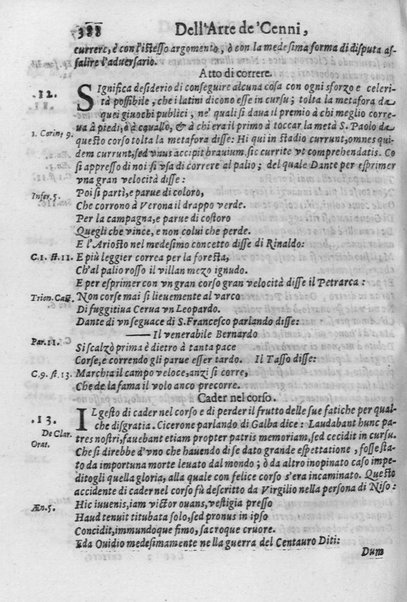 388
Dell'Arte de'Cenni,
currere, è con l'istesso argomento, ò con la medesima forma di disputa as-
salire l'aduersario.
Atto di correre.
.12.
Significa desiderio di conseguire alcuna cosa con ogni sforzo e celeri-
tà possibile, che i latini dicono esse in cursu; tolta la metafora da
quei giuochi publici, ne' quali si daua il premio à chi meglio corre-
ua à piedi, ò à cauallo, & à chi era il primo à toccar la metà S. Paolo da
1. Corin. 9.
questo corso tolto la metafora disse: Hi qui in stadio currunt, omnes qui-
dem currunt, sed vnus accipit brauium. sic currite vt comprehendatis. Co
si appresso di noi si vsa di correre al palio; del quale Dante per esprimer
vna gran velocità disse:
Infer. 5.
Poi si partì, e parue di coloro,
Che corrono à Verona il drappo verde.
Per la campagna, e parue di costoro
Quegli che vince, e non colui che perde.
E l'Ariosto nel medesimo concetto disse di Rinaldo:
C. 1. st. 11.
E più leggier correa per la foresta,
Ch'al palio rosso il villan mezo ignudo.
E per esprimer con vn gran corso gran velocità disse il Petrarca:
Trion. Cast.
Non corse mai sì lieuemente al varco
Di fuggitiua Cerua vn Leopardo.
Dante di vn seguace di S. Francesco parlando disse:
—— Il venerabile Bernardo
Par. 11.
Si scalzò prima è dietro à tanta pace
Corse, e correndo gli parue esser tardo. Il Tasso disse:
C. 9. st. 13.
Marchia il campo veloce, anzi sì corre,
Che de la fama il volo anco precorre.
Cader nel corso.
.13.
Il gesto di cader nel corso e di perder il frutto delle sue fatiche per qual-
che disgratia. Cicerone parlando di Galba dice: Laudabant hunc pa-
De Clar.
Orat.
tres nostri, fauebant etiam propter patris memoriam, sed cecidit in cursu.
Che si direbbe d'vno che hauendo di se dato grande espettatione, fosse sta-
to da importuna morte leuato dal mondo; ò da altro inopinato caso impe-
ditogli quella gloria, alla quale con felice corso s'era incaminato. Questo
accidente di cader nel corso fù descritto da Virgilio nella persona di Niso:
Æn. 5.
Hic iuuenis, iam victor ouans, vestigia presso
Haud tenuit titubata solo, sed pronus in ipso
Concidit, immundoque fimo, sacroque cruore.
Eda Ouidio medesimamente nella guerra del Centauro Diti:
Dum